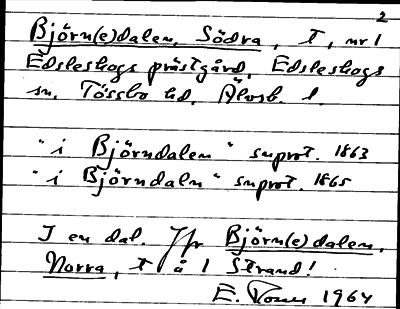 2
Björn(e)dalen, Södra, t, nr 1
Edsleskogs prästgård, Edsleskogs
sn, Tössbo hd, Älvsb. l.
"i Björndalen" suprot. 1863
"i Björndaln" suprot. 1865
I en dal. Jfr Björn(e)dalen,
Norra, t å 1 Strand!
E. 1964